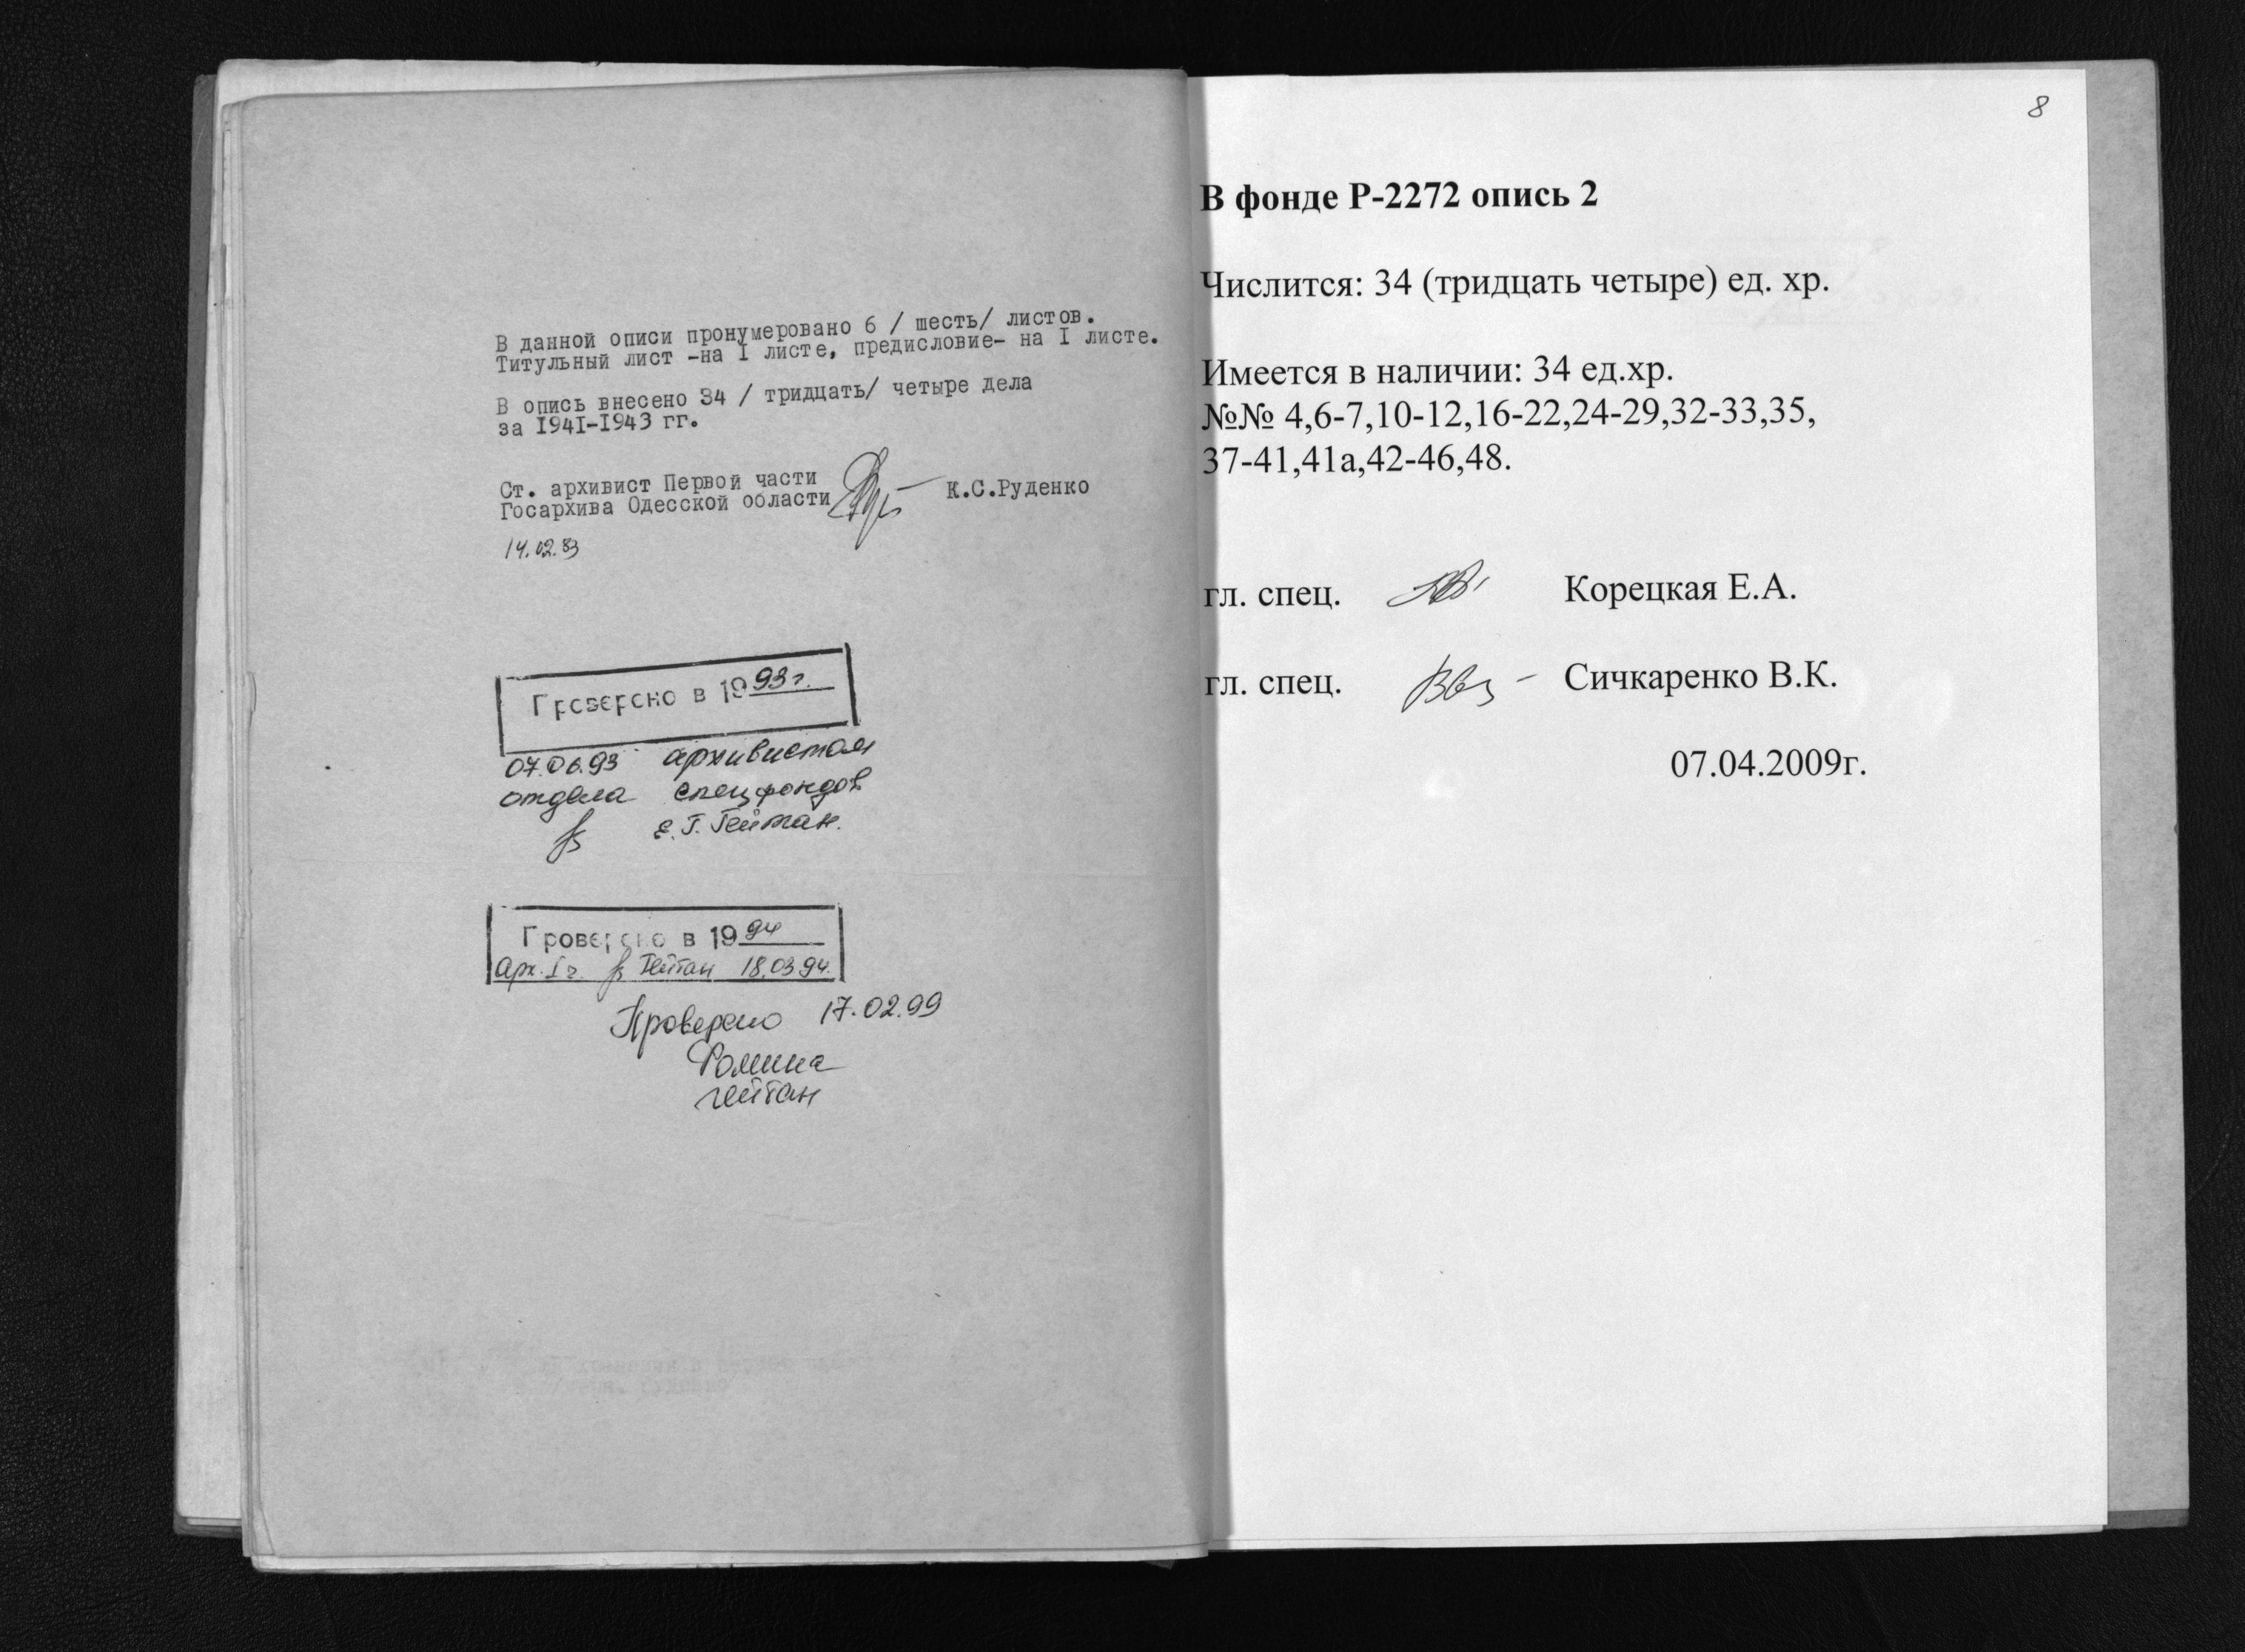 В данной описи пронумеровано 6 / шесть/ листов.
Титульный лист -на I листе, предисловие- на I листе.
В опись внесено 34 / тридцать/ четыре дела
за 1941-1943 гг.
Ст. архивист Первой части
Госархива Одесской области К.С.Руденко
14.02.83
Проверено в 1993г.
07.06.93 архивистом
отдела спецфондов
Е.Г. Гейтан.
Проверено в 1994
Арх. I ч. Гейтан 18.03.94.
Проверено 17.02.99
Фомина
Гейтан
8
В фонде Р-2272 опись 2
Числится: 34 (тридцать четыре) ед. хр.
Имеется в наличии: 34 ед.хр.
№№ 4,6-7,10-12,16-22,24-29,32-33,35,
37-41,41а,42-46,48.
гл. спец. Корецкая Е.А.
гл. спец. Сичкаренко В.К.
07.04.2009г.